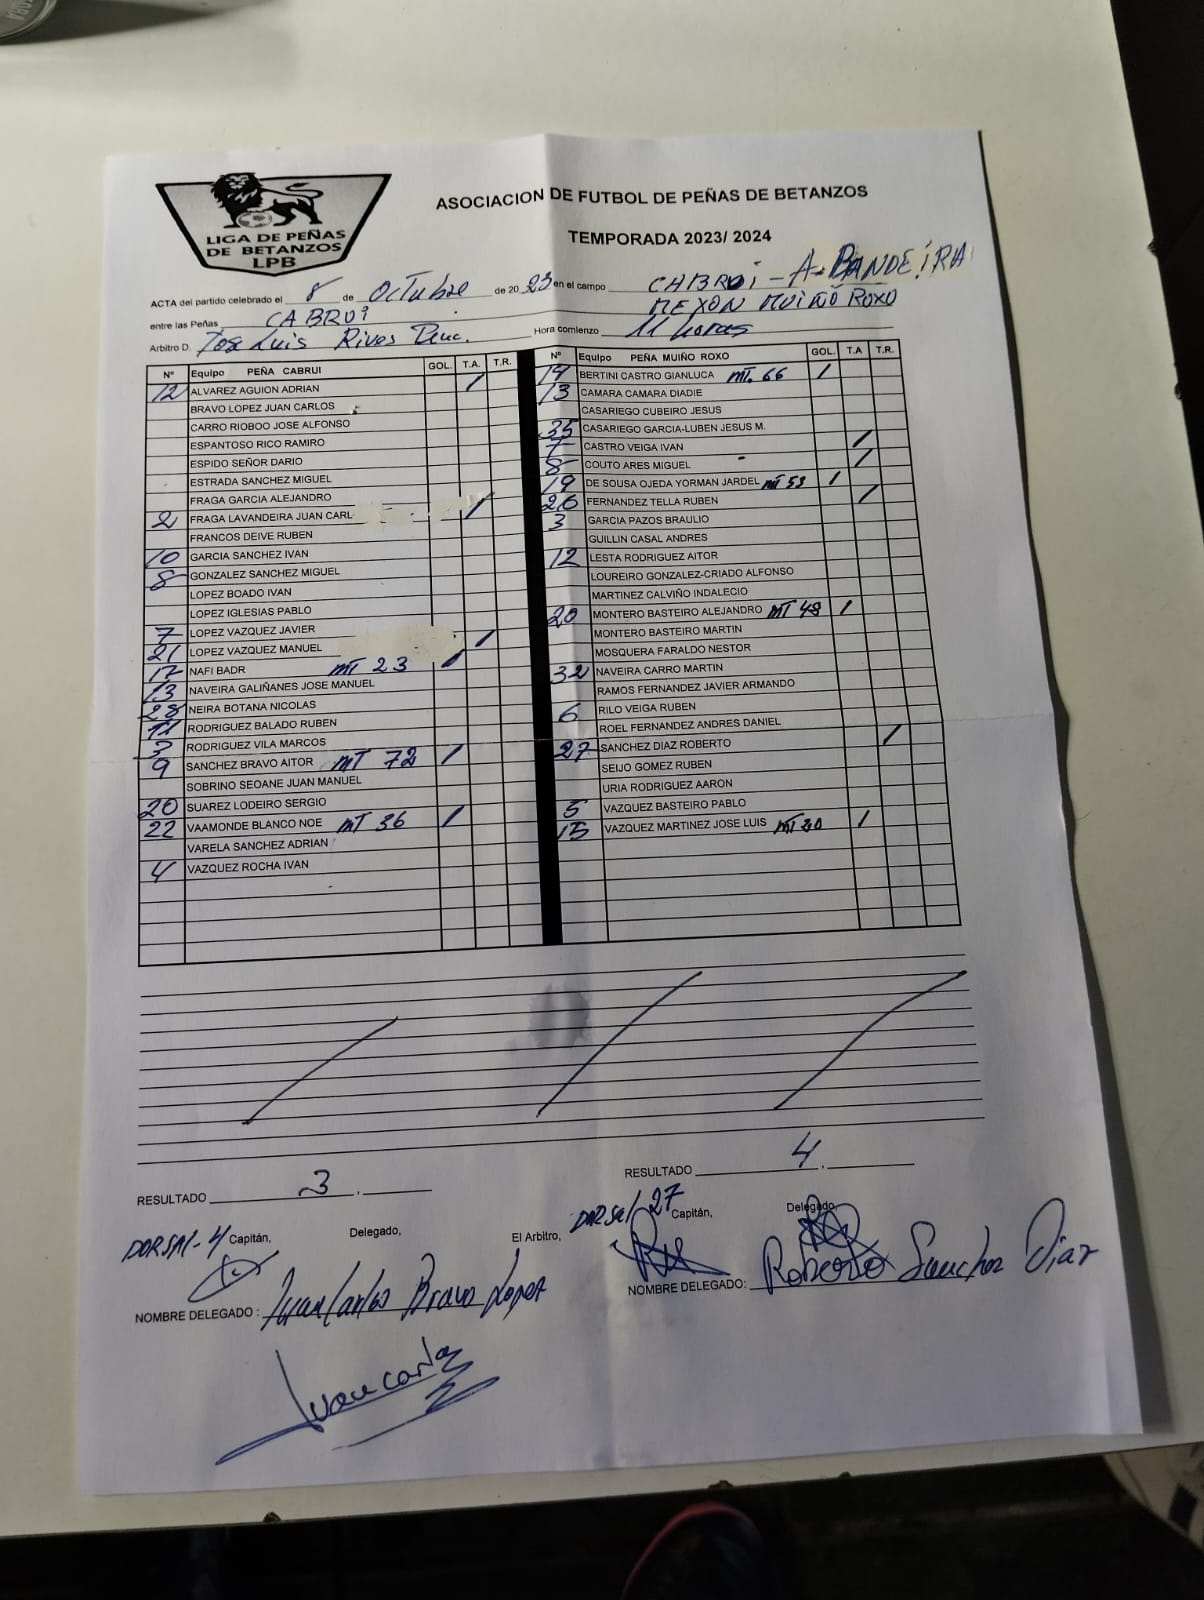 LIGA DE PEÑAS
DE BETANZOS
LPB
ASOCIACION DE FUTBOL DE PEÑAS DE BETANZOS
TEMPORADA 2023/ 2024
ACTA del partido celebrado el 8 de Octubre de 2023 en el campo CABROI - A BANDEIRA
entre las Peñas CABROI MEXON MUIÑO ROXO
Arbitro D. Jose Luis Rivas Hora comienzo 11 horas
Nº Equipo PEÑA CABRUI GOL. T.A. T.R.
12 ALVAREZ AGUION ADRIAN /
BRAVO LOPEZ JUAN CARLOS
CARRO RIOBOO JOSE ALFONSO
ESPANTOSO RICO RAMIRO
ESPIDO SEÑOR DARIO
ESTRADA SANCHEZ MIGUEL
FRAGA GARCIA ALEJANDRO
2 FRAGA LAVANDEIRA JUAN CARL /
FRANCOS DEIVE RUBEN
10 GARCIA SANCHEZ IVAN
8 GONZALEZ SANCHEZ MIGUEL
LOPEZ BOADO IVAN
LOPEZ IGLESIAS PABLO
7 LOPEZ VAZQUEZ JAVIER
21 LOPEZ VAZQUEZ MANUEL /
17 NAFI BADR MT 23 /
13 NAVEIRA GALIÑANES JOSE MANUEL
28 NEIRA BOTANA NICOLAS
11 RODRIGUEZ BALADO RUBEN
3 RODRIGUEZ VILA MARCOS
9 SANCHEZ BRAVO AITOR MT 72 /
SOBRINO SEOANE JUAN MANUEL
20 SUAREZ LODEIRO SERGIO
22 VAAMONDE BLANCO NOE MT 36 /
VARELA SANCHEZ ADRIAN
4 VAZQUEZ ROCHA IVAN
Nº Equipo PEÑA MUIÑO ROXO GOL. T.A T.R.
14 BERTINI CASTRO GIANLUCA MT. 66 /
13 CAMARA CAMARA DIADIE
CASARIEGO CUBEIRO JESUS
35 CASARIEGO GARCIA-LUBEN JESUS M.
7 CASTRO VEIGA IVAN /
8 COUTO ARES MIGUEL /
19 DE SOUSA OJEDA YORMAN JARDEL MT 53 /
26 FERNANDEZ TELLA RUBEN /
3 GARCIA PAZOS BRAULIO
GUILLIN CASAL ANDRES
12 LESTA RODRIGUEZ AITOR
LOUREIRO GONZALEZ-CRIADO ALFONSO
MARTINEZ CALVIÑO INDALECIO
20 MONTERO BASTEIRO ALEJANDRO MT 48 /
MONTERO BASTEIRO MARTIN
MOSQUERA FARALDO NESTOR
32 NAVEIRA CARRO MARTIN
RAMOS FERNANDEZ JAVIER ARMANDO
6 RILO VEIGA RUBEN
ROEL FERNANDEZ ANDRES DANIEL
27 SANCHEZ DIAZ ROBERTO /
SEIJO GOMEZ RUBEN
URIA RODRIGUEZ AARON
5 VAZQUEZ BASTEIRO PABLO
15 VAZQUEZ MARTINEZ JOSE LUIS MT /
RESULTADO 3 .
RESULTADO 4 .
DORSAL-4 Capitán, Delegado, El Arbitro, DORSAL 27 Capitán, Delegado,
NOMBRE DELEGADO : Juan Carlos Bravo Lopez
NOMBRE DELEGADO: Roberto Sanchez Diaz
Juan Carlos